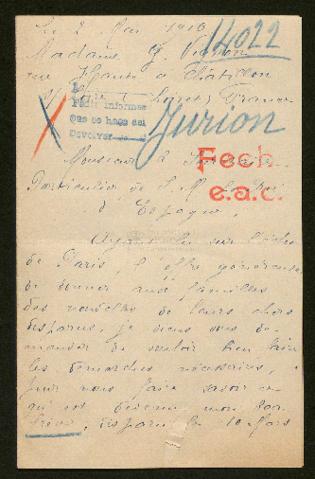 Le 2 Mai 1919
14022
Madame G.
rue Haute à Châtillon
(Loiret) France
Pedir informes
que se haga del
Devolver
Jurion
Monsieur le Secrétaire
Fech
e.a.c.
Particulier de S. M. le Roi
d'Espagne,
Ayant lu sur l'écho
de Paris, l'offre généreuse
de donner aux familles
des nouvelles de leurs chers
disparus, je viens vous de-
mander de vouloir bien faire
les démarches nécessaires,
pour nous faire savoir ce
qu'est devenu mon beau
frère, disparu le 10